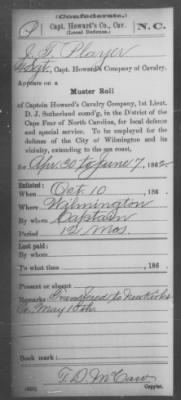 (Confederate.)
P Capt. Howard's Co., Cav. N.C.
(Local Defense.)
J. T. Player
Sgt., Capt. Howard's Company of Cavalry.
Appears on a
Muster Roll
of Captain Howard's Cavalry Company, 1st Lieut.
D. J. Southerland comd'g, in the District of the
Cape Fear of North Carolina, for local defence
and special service. To be employed for the
defense of the City of Wilmington and its
vicinity, extending to the sea coast,
for Apr. 30 to June 7, 1862
Enlisted:
When Oct 10, 186
Where Wilmington
By whom Captain
Period 12 mos.
Last paid:
By whom
To what time , 186 .
Present or absent
Remarks: Transferred to
Co. May 15th.
Book mark:
T. D. McCaw
Copyist.